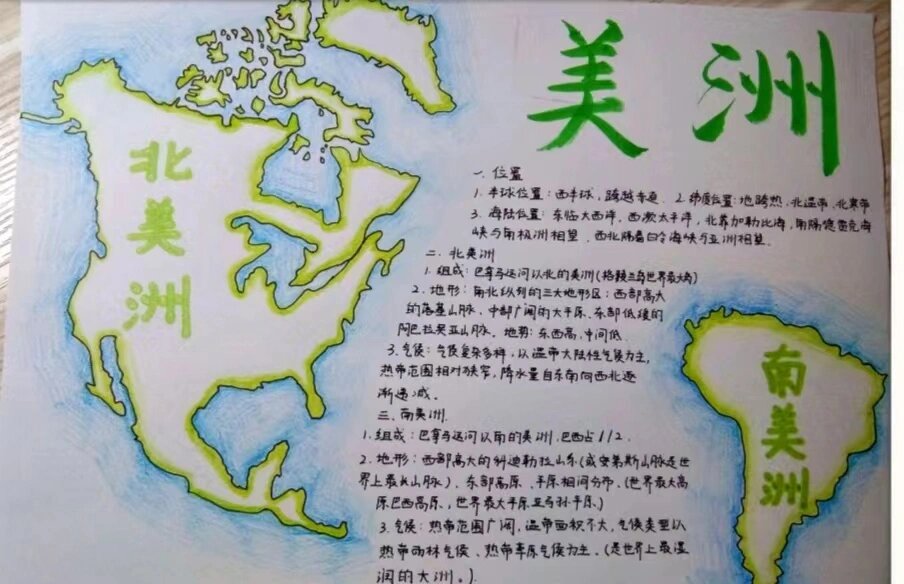 美洲
北美洲
一、位置
1. 半球位置：西半球，跨越赤道 2. 纬度位置：地跨热，北温带，北寒带
3. 海陆位置：东临大西洋，西濒太平洋，北靠加勒比海，南隔德雷克海
峡与南极洲相望，西北隔着白令海峡与亚洲相望．
二、北美洲
1. 组成：巴拿马运河以北的美洲(格陵兰岛世界最大岛)
2. 地形：南北纵列的三大地形区：西部高大
的落基山脉，中部广阔的大平原、东部低缓的
阿巴拉契亚山脉。地势：东西高，中间低．
3. 气候：气候复杂多样，以温带大陆性气候为主，
热带范围相对狭窄，降水量自东南向西北逐
渐递减。
三、南美洲．
1. 组成：巴拿马运河以南的美洲，巴西占1/2．
2. 地形：西部高大的科迪勒拉山系(或安第斯山脉是世
界上最长山脉)、东部高原、平原相间分布、(世界最大高
原巴西高原、世界最大平原亚马孙平原、)
3. 气候：热带范围广阔，温带面积不大，气候类型以
热带雨林气候、热带草原气候为主、(是世界上最湿
润的大洲。)．
南美洲